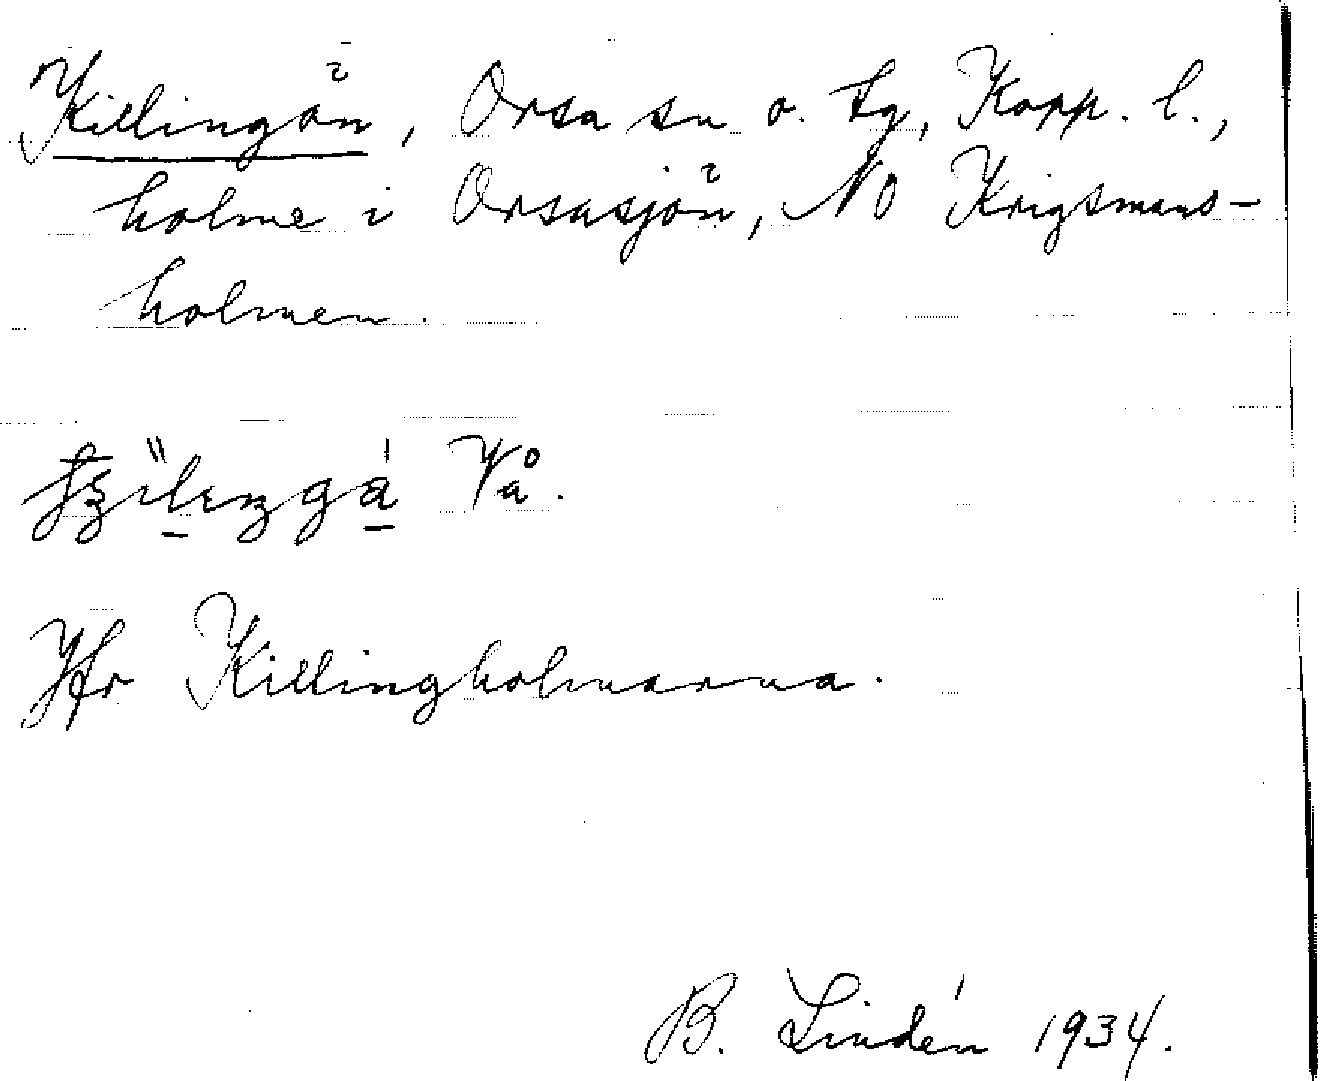 Killingön, Orsa sn o. tg, Kopp. l.,
holme i Orsasjön, NO Krigsmans-
holmen.
Vå.
Jfr Killingholmarna.
B. Lindén 1934.